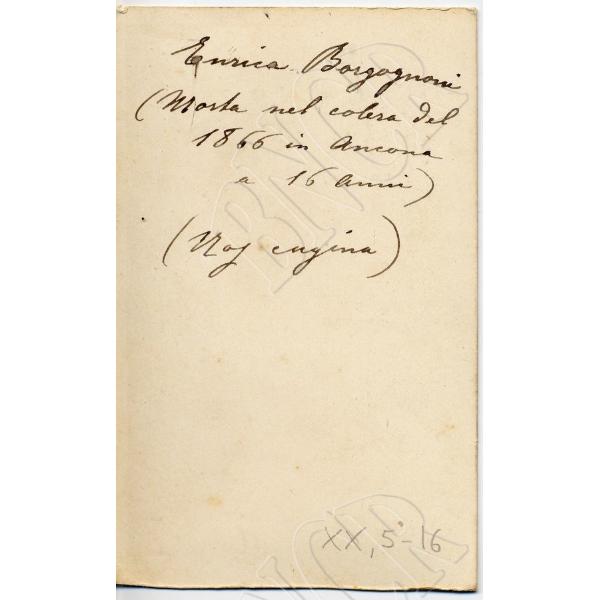 Enrica Borgognoni
(Morta nel colera del
1866 in Ancona
a 16 anni)
(Nos cugina)
XX, 5-16